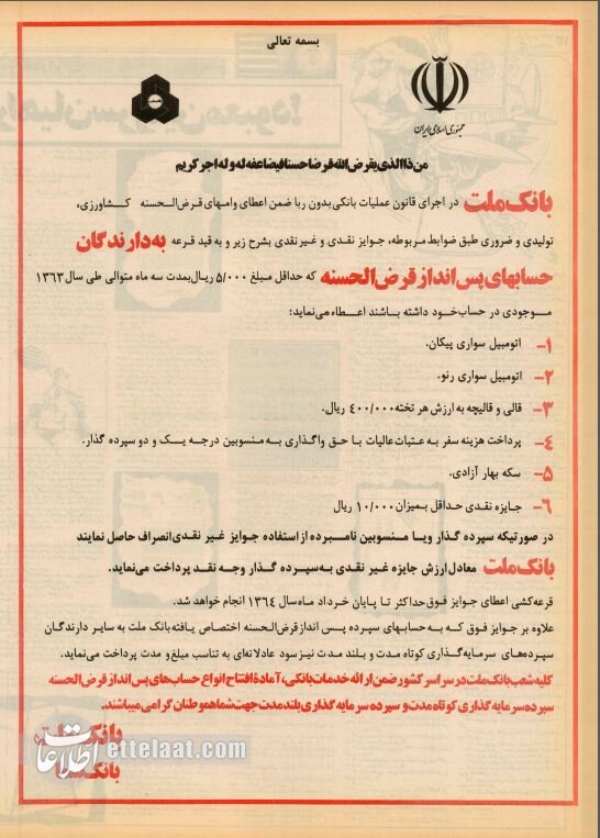 بسمه تعالی
جمهوری اسلامی ایران
من ذا الذی یقرض الله قرضا حسنا فیضاعفه له و له اجر کریم
بانک ملت در اجرای قانون عملیات بانکی بدون ربا ضمن اعطای وامهای قرض‌الحسنه کشاورزی،
تولیدی و ضروری طبق ضوابط مربوطه، جوایز نقدی و غیر نقدی بشرح زیر و به قید قرعه به دارندگان
حسابهای پس انداز قرض الحسنه که حداقل مبلغ ۵/۰۰۰ ریال بمدت سه ماه متوالی طی سال ۱۳۶۳
موجودی در حساب خود داشته باشند اعطاء می‌نماید:
۱- اتومبیل سواری پیکان.
۲- اتومبیل سواری رنو.
۳- قالی و قالیچه به ارزش هر تخته ۴۰۰/۰۰۰ ریال.
۴- پرداخت هزینه سفر به عتبات عالیات با حق واگذاری به منسوبین درجه یک و دو سپرده گذار.
۵- سکه بهار آزادی.
۶- جایزه نقدی حداقل بمیزان ۱۰/۰۰۰ ریال
در صورتیکه سپرده گذار ویا منسوبین نامبرده از استفاده جوایز غیر نقدی انصراف حاصل نمایند
بانک ملت معادل ارزش جایزه غیر نقدی به سپرده گذار وجه نقد پرداخت می‌نماید.
قرعه‌کشی اعطای جوایز فوق حداکثر تا پایان خرداد ماه سال ۱۳۶۴ انجام خواهد شد.
علاوه بر جوایز فوق که به حسابهای سپرده پس انداز قرض‌الحسنه اختصاص یافته بانک ملت به سایر دارندگان
سپرده‌های سرمایه‌گذاری کوتاه مدت و بلند مدت نیز سود عادلانه‌ای به تناسب مبلغ و مدت پرداخت می‌نماید.
کلیه شعب بانک ملت در سراسر کشور ضمن ارائه خدمات بانکی، آمادهٔ افتتاح انواع حساب‌های پس انداز قرض الحسنه
سپرده سرمایه گذاری کوتاه مدت و سپرده سرمایه گذاری بلند مدت جهت شما هموطنان گرامی میباشند.
بانک ملت
بانک شما
اطلاعات ettelaat.com